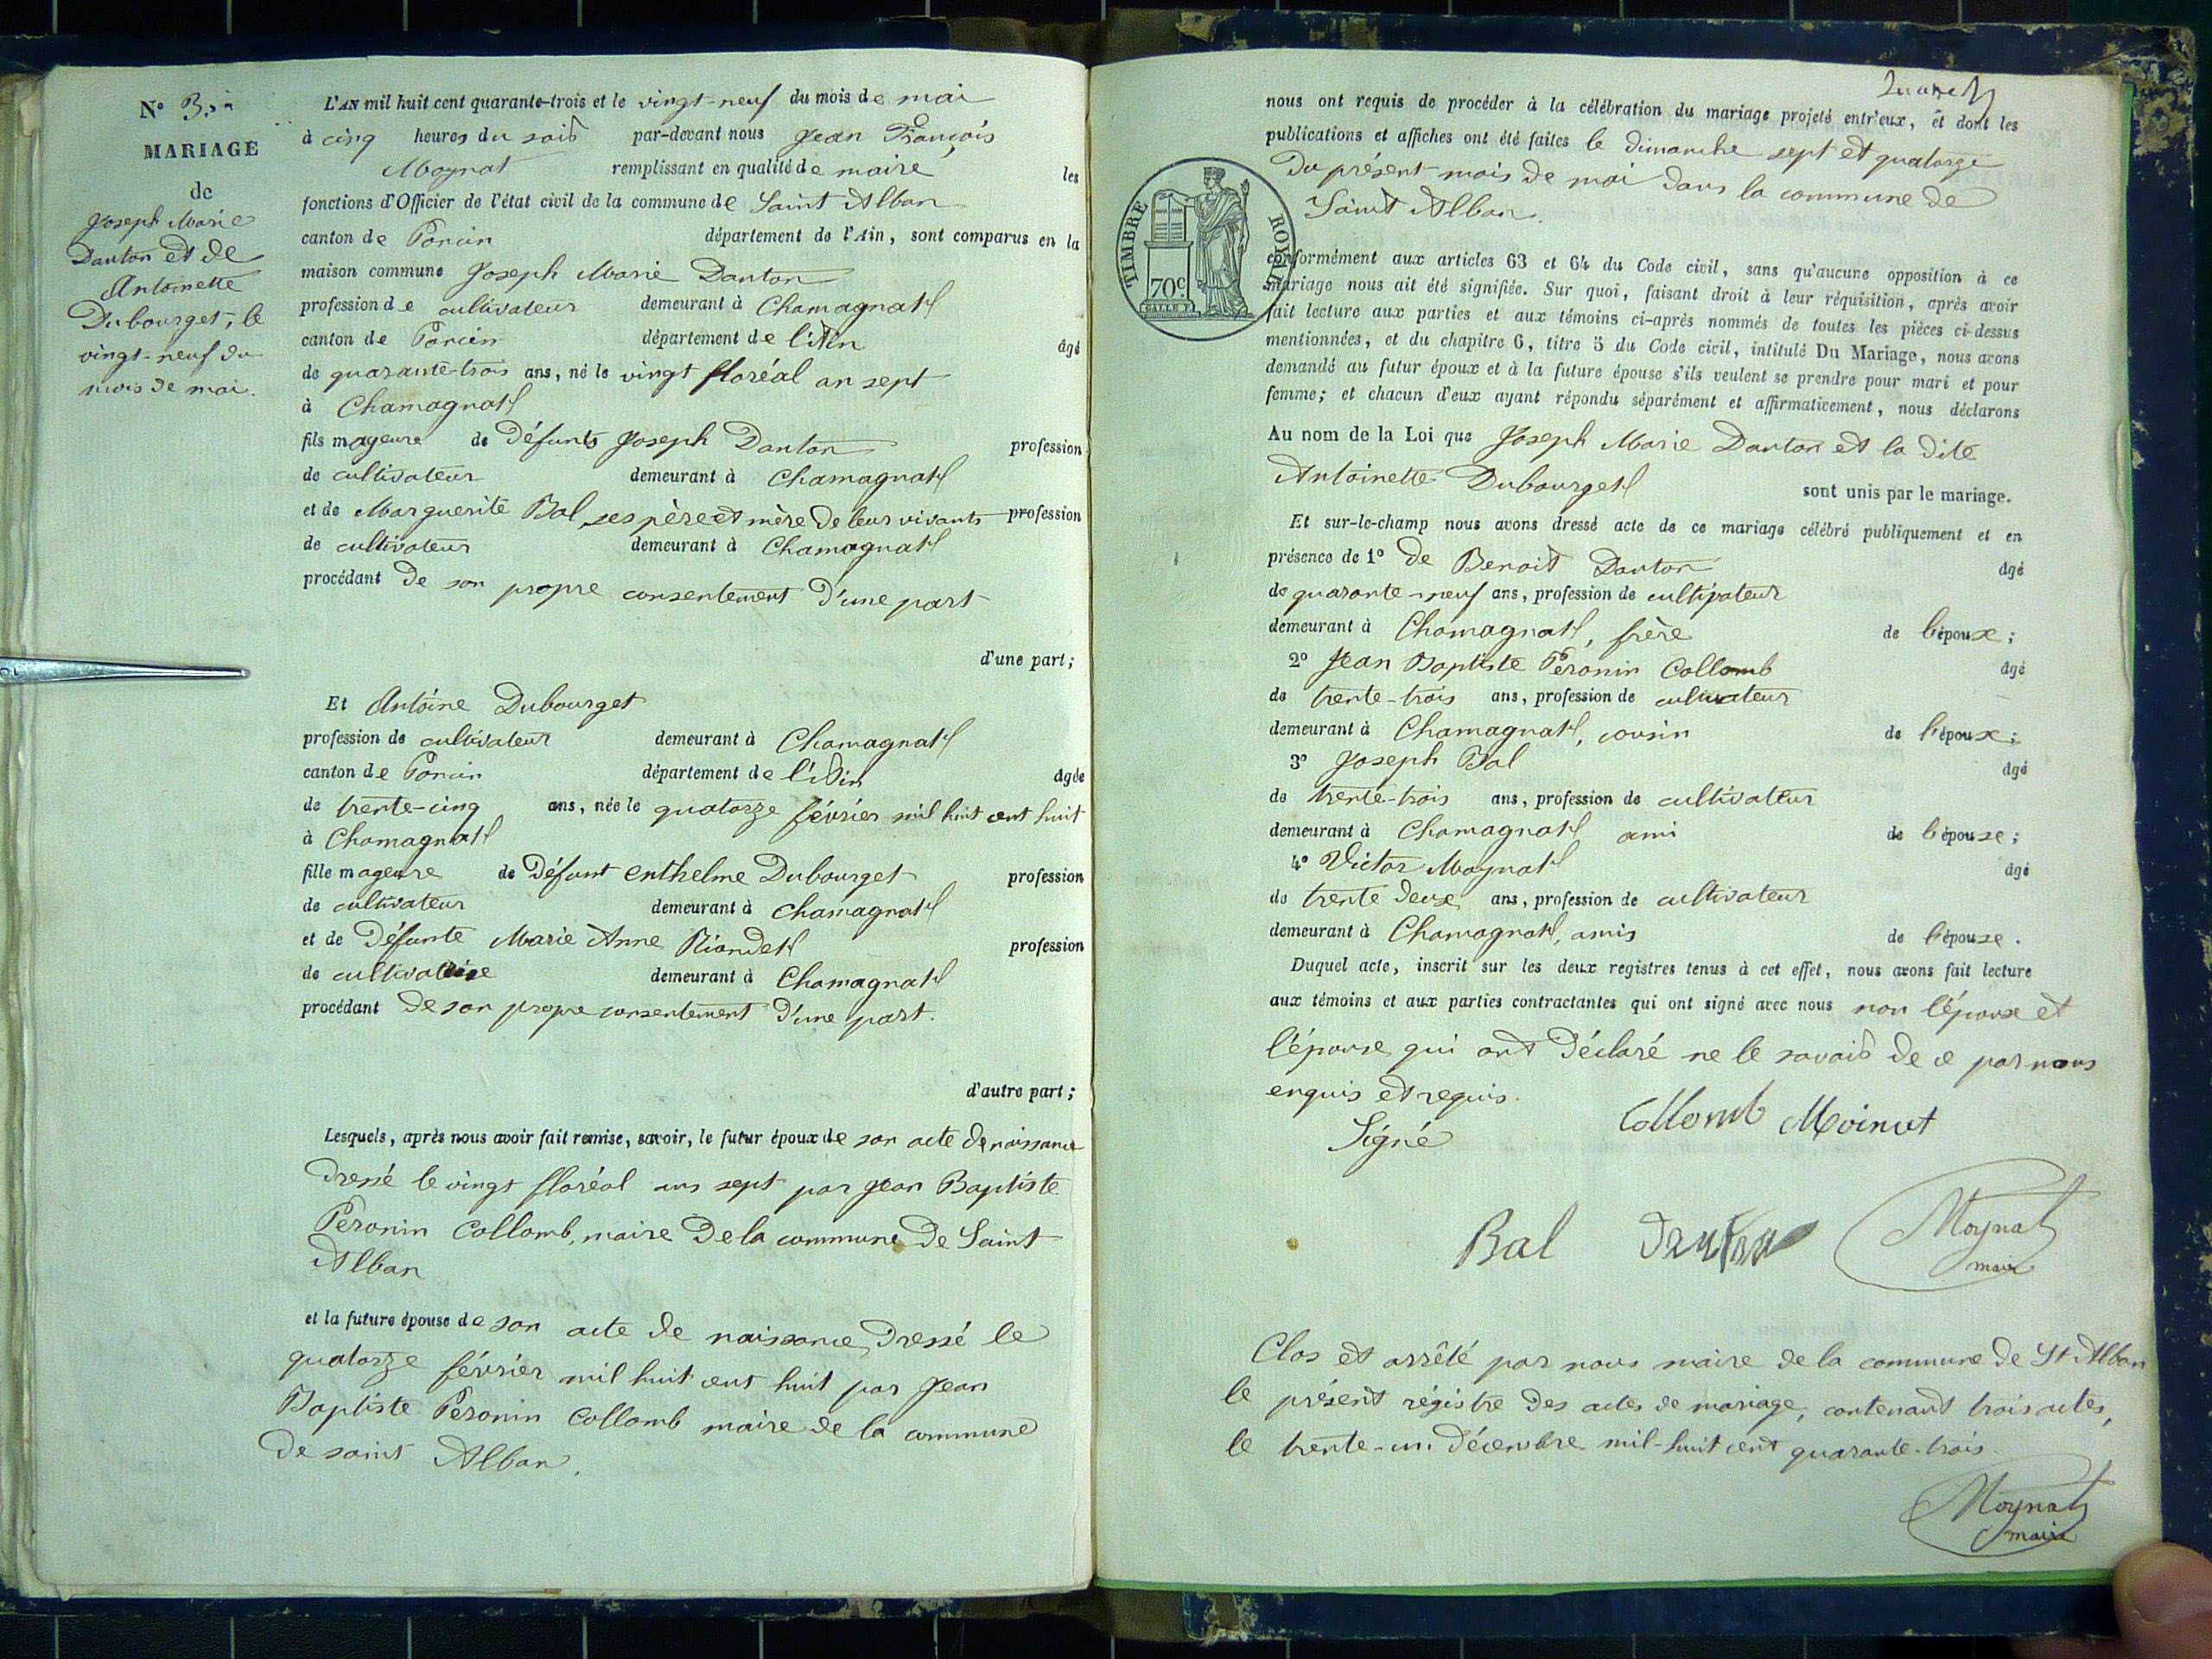 N° 3
MARIAGE
de
Joseph Marie
Danton et de
Antoinette
Dubourget, le
vingt-neuf du
mois de mai.
L'AN mil huit cent quarante-trois et le vingt-neuf du mois de mai
à cinq heures du soir par-devant nous Jean François
Moynat remplissant en qualité de maire les
fonctions d'Officier de l'état civil de la commune de Saint Alban
canton de Poncin département de l'Ain, sont comparus en la
maison commune Joseph Marie Danton
profession de cultivateur demeurant à Chamagnat
canton de Poncin département de l'Ain âgé
de quarante-trois ans, né le vingt floréal an sept
à Chamagnat
fils mageure de Défunts Joseph Danton profession
de cultivateur demeurant à Chamagnat
et de Marguerite Bal, ses père et mère de leur vivants profession
de cultivateur demeurant à Chamagnat
procédant de son propre consentement d'une part
d'une part;
Et Antoine Dubourget
profession de cultivateur demeurant à Chamagnat
canton de Poncin département de l'Ain âgée
de trente-cinq ans, née le quatorze février mil huit cent huit
à Chamagnat
fille mageure de Défunt enthelme Dubourget profession
de cultivateur demeurant à Chamagnat
et de Défunte Marie Anne Riondet profession
de demeurant à Chamagnat
procédant de son propre consentement d'une part.
d'autre part;
Lesquels, après nous avoir fait remise, savoir, le futur époux de son acte de naissance
dressé le vingt floréal ans sept par Jean Baptiste
Peronin Collomb, maire de la commune de Saint
Alban
et la future épouse de son acte de naissance dressé le
quatorze février mil huit cent huit par Jean
Baptiste Peronin Collomb maire de la commune
de saint Alban.
nous ont requis de procéder à la célébration du mariage projeté entr'eux, et dont les
publications et affiches ont été faites le dimanche sept et quatorze
du présent mois de mai dans la commune de
Saint Alban.
TIMBRE ROYAL
70c
conformément aux articles 63 et 64 du Code civil, sans qu'aucune opposition à ce
mariage nous ait été signifiée. Sur quoi, faisant droit à leur réquisition, après avoir
fait lecture aux parties et aux témoins ci-après nommés de toutes les pièces ci-dessus
mentionnées, et du chapitre 6, titre 5 du Code civil, intitulé Du Mariage, nous avons
demandé au futur époux et à la future épouse s'ils veulent se prendre pour mari et pour
femme; et chacun d'eux ayant répondu séparément et affirmativement, nous déclarons
Au nom de la Loi que Joseph Marie Danton et la dite
Antoinette Dubourget sont unis par le mariage.
Et sur-le-champ nous avons dressé acte de ce mariage célébré publiquement et en
présence de 1° de Benoit Danton âgé
de quarante-neuf ans, profession de cultivateur
demeurant à Chamagnat, frère de l'époux;
2° Jean Baptiste Péronin Collomb âgé
de trente-trois ans, profession de cultivateur
demeurant à Chamagnat, cousin de l'époux;
3° Joseph Bal âgé
de trente-trois ans, profession de cultivateur
demeurant à Chamagnat ami de l'épouse;
4° Victor Moynat âgé
de trente deux ans, profession de cultivateur
demeurant à Chamagnat, amis de l'épouse.
Duquel acte, inscrit sur les deux registres tenus à cet effet, nous avons fait lecture
aux témoins et aux parties contractantes qui ont signé avec nous non l'époux et
l'épouse qui ont déclaré ne le savoir de ce par nous
enquis et requis.
Signé Collomb Moinat
Bal Danton Moynat
maire
Clos et arrêté par nous maire de la commune de St Alban
le présent régistre des actes de mariage, contenant trois actes,
le trente-un décembre mil-huit cent quarante-trois
Moynat
maire